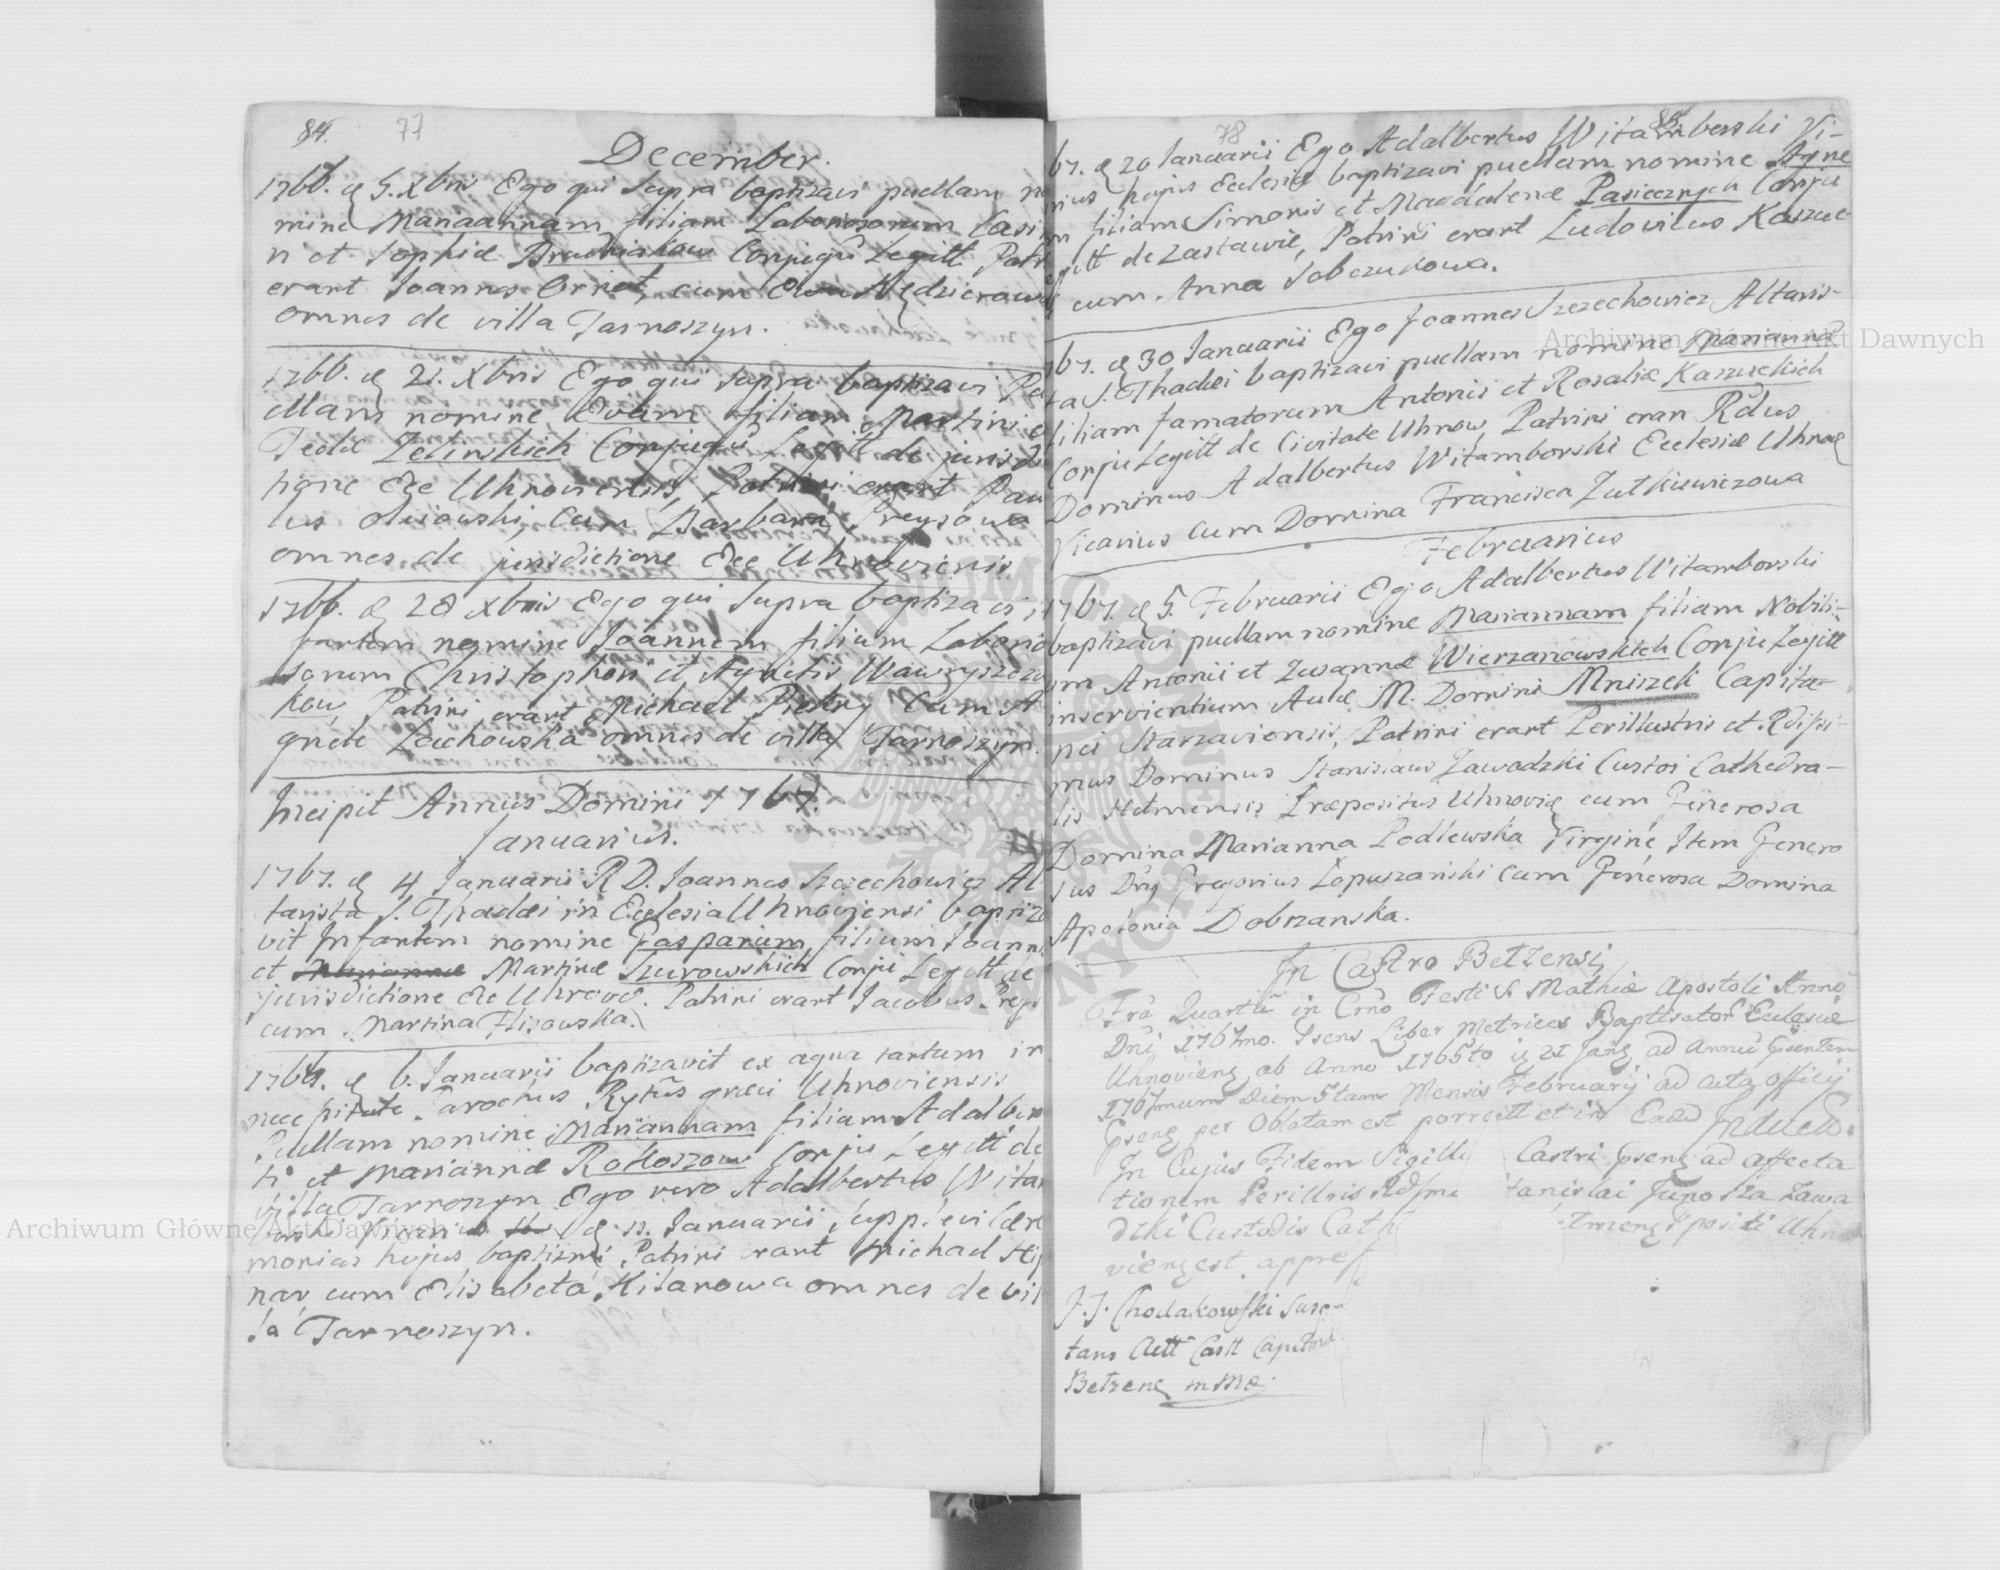 84.
77
December.
1766. d. 5. Xbris Ego qui supra baptizavi puellam no
mine Mariaannam filiam Laboriosorum Casim
ri et Sophiæ Conjugū Legitt. Patr
erant Joannes Ornet, cum Ewa Kędzierows
omnes de villa Tarnoszyn.
1766. d. 21. Xbris Ego qui supra baptizavi Pu
ellam nomine Evam filiam Martini e
Teclæ Zelinskich Conjugū Legitt de jurisdi
tione Ecc Uhnoviensis, Patrini erant Pau
lus cum Barbara Preysowa
omnes de jurisdictione Ecc Uhnoviensis
1766. d. 28 Xbris Ego qui supra baptizavi in
fantem nomine Joannem filium Laborio
sorum Christophori et Agnetis Wawryszcz
kow, Patrini erant Michael Pietry cum A
gnete Lachowska omnes de villa Tarnoszyn.
Incipit Annus Domini 1767.
Januarius.
1767. d. 4 Januarii R D. Joannes Szczechowicz Al
tarista S. Thadæi in Ecclesia Uhnoviensi baptiza
vit Infantem nomine Gasparum filium Joanni
et Martinæ Szurowskich Conju Legitt de
jurisdictione Ecc Uhnovi. Patrini erant Jacobus Preys
cum Martina Flisowska.
1767. d. 6. Januarii baptizavit ex aqua tantum in
necessitate Parochus Rytūs græci Uhnoviensis
Puellam nomine Mariannam filiam Adalber
ti et Mariannæ Rokoszow Conju Legitt de
villa Tarnoszyn Ego vero Adalbertus Witam
Januarii supplevi cære
monias hujus baptizmi Patrini erant Michael
nar cum Elisabeta Kitarowa omnes de vil
la Tarnoszyn.
78
85.
67. d. 20 Januarii Ego Adalbertus Witamborski Vi-
rius hujus Ecclesiæ baptizavi puellam nomine Agne
m filiam Simonis et Magdalenæ Pasiecznych Conju
egitt de Zastawie, Patrini erant Ludovicus Kaszue
cum Anna Sobczukowa.
67. d. 30 Januarii Ego Joannes Szczechowicz Altaris-
ta S. Thadei baptizavi puellam nomine Mariannā
filiam famatorum Antonii et Rosaliæ Kaszuckich
Conju Legitt de Civitate Uhnow, Patrini eran Rdus
Dominus Adalbertus Witamborski Ecclesiæ Uhnov
Vicarius cum Domina Francisca Zutkiewiczowa
Februarius
1767. d. 5. Februarii Ego Adalbertus Witamborski
baptizavi puellam nomine Mariannam filiam Nobili-
um Antonii et Zusannæ Wierzanowskich Conju Legitt
inservientium Aulæ M. Domini Mniszek Capita-
nei Patrini erant Perillustris et Rdissi-
mus Dominus Stanislaus Zawadzki Custos Cathedra-
lis Helmensis Præpositus Uhnoviē cum Generosa
Domina Marianna Podlewska Virgine Item Genero
sus Dns Gregorius Łopuszański cum Generosa Domina
Apolonia Dobrzanska.
In Castro Betzensi
Fria Quarta in Crno Festi S. Mathiæ Apostoli Anno
Dni 1767mo. Psens Liber Metrices Baptisator Ecclesiæ
Uhnovien ab Anno 1765to ad Annū Psentem
1767mum Diem 5tam Mensis Februarij ad acta officij
Psens per Oblatam est porrect et in Eadē Induct.
In Cujus Fidem Sigill Castri Psens ad affecta
tionem Perillris Rdssmi Stanislai Junosza Zawa
dzki Custodis Cath positi Uhno
vien est appres
J. J. Chodakowski Susc-
tans Actt Castt Capitnea
Betzens mmo.